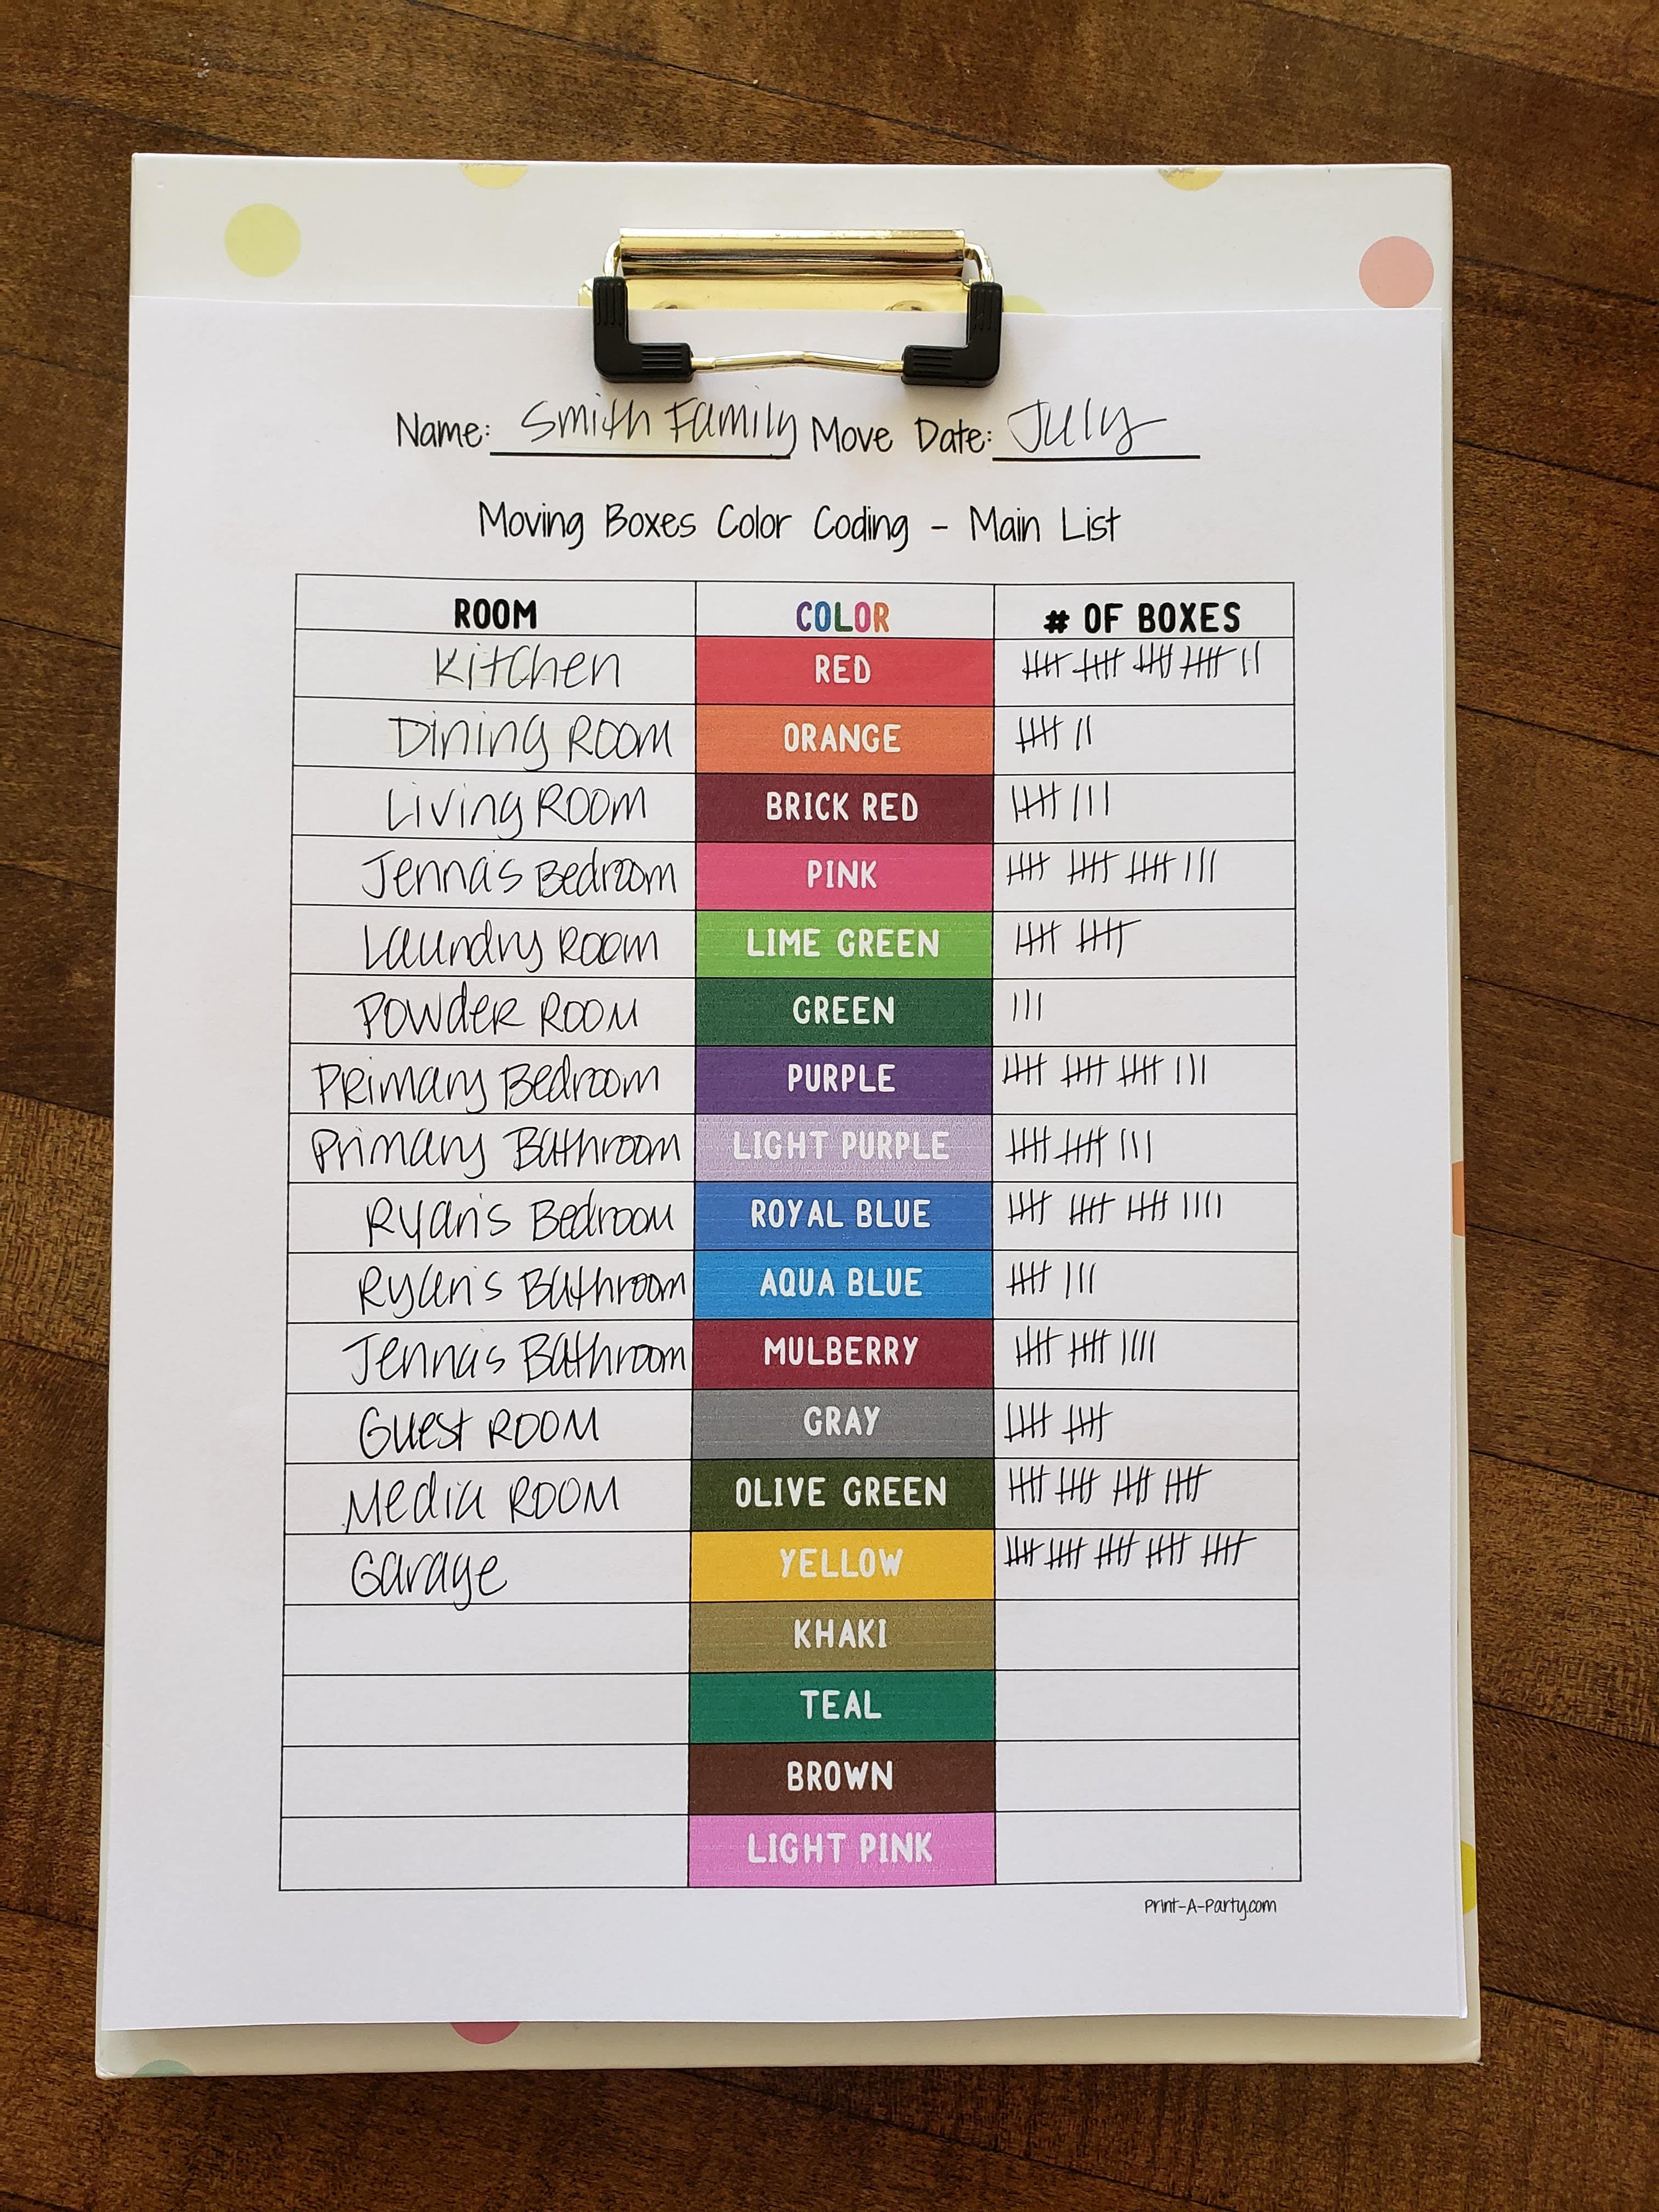 Name: Smith Family Move Date: July
Moving Boxes Color Coding - Main List
ROOM COLOR # OF BOXES
Kitchen RED 卌 卌 卌 卌 ||
Dining Room ORANGE 卌 ||
Living Room BRICK RED 卌 |||
Jenna's Bedroom PINK 卌 卌 卌 |||
Laundry Room LIME GREEN 卌 卌
Powder Room GREEN |||
Primary Bedroom PURPLE 卌 卌 卌 |||
Primary Bathroom LIGHT PURPLE 卌 卌 |||
Ryan's Bedroom ROYAL BLUE 卌 卌 卌 ||||
Ryan's Bathroom AQUA BLUE 卌 |||
Jenna's Bathroom MULBERRY 卌 卌 ||||
Guest Room GRAY 卌 卌
Media Room OLIVE GREEN 卌 卌 卌 卌
Garage YELLOW 卌 卌 卌 卌 卌
KHAKI
TEAL
BROWN
LIGHT PINK
Print-A-Party.com